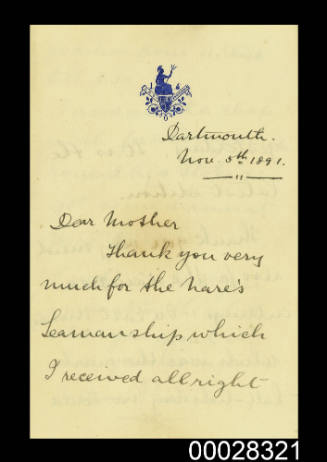 Dartmouth.
Nov. 5th 1891.
Dear Mother
Thank you very
much for the Nare's
Seamanship which
I received allright
00028321